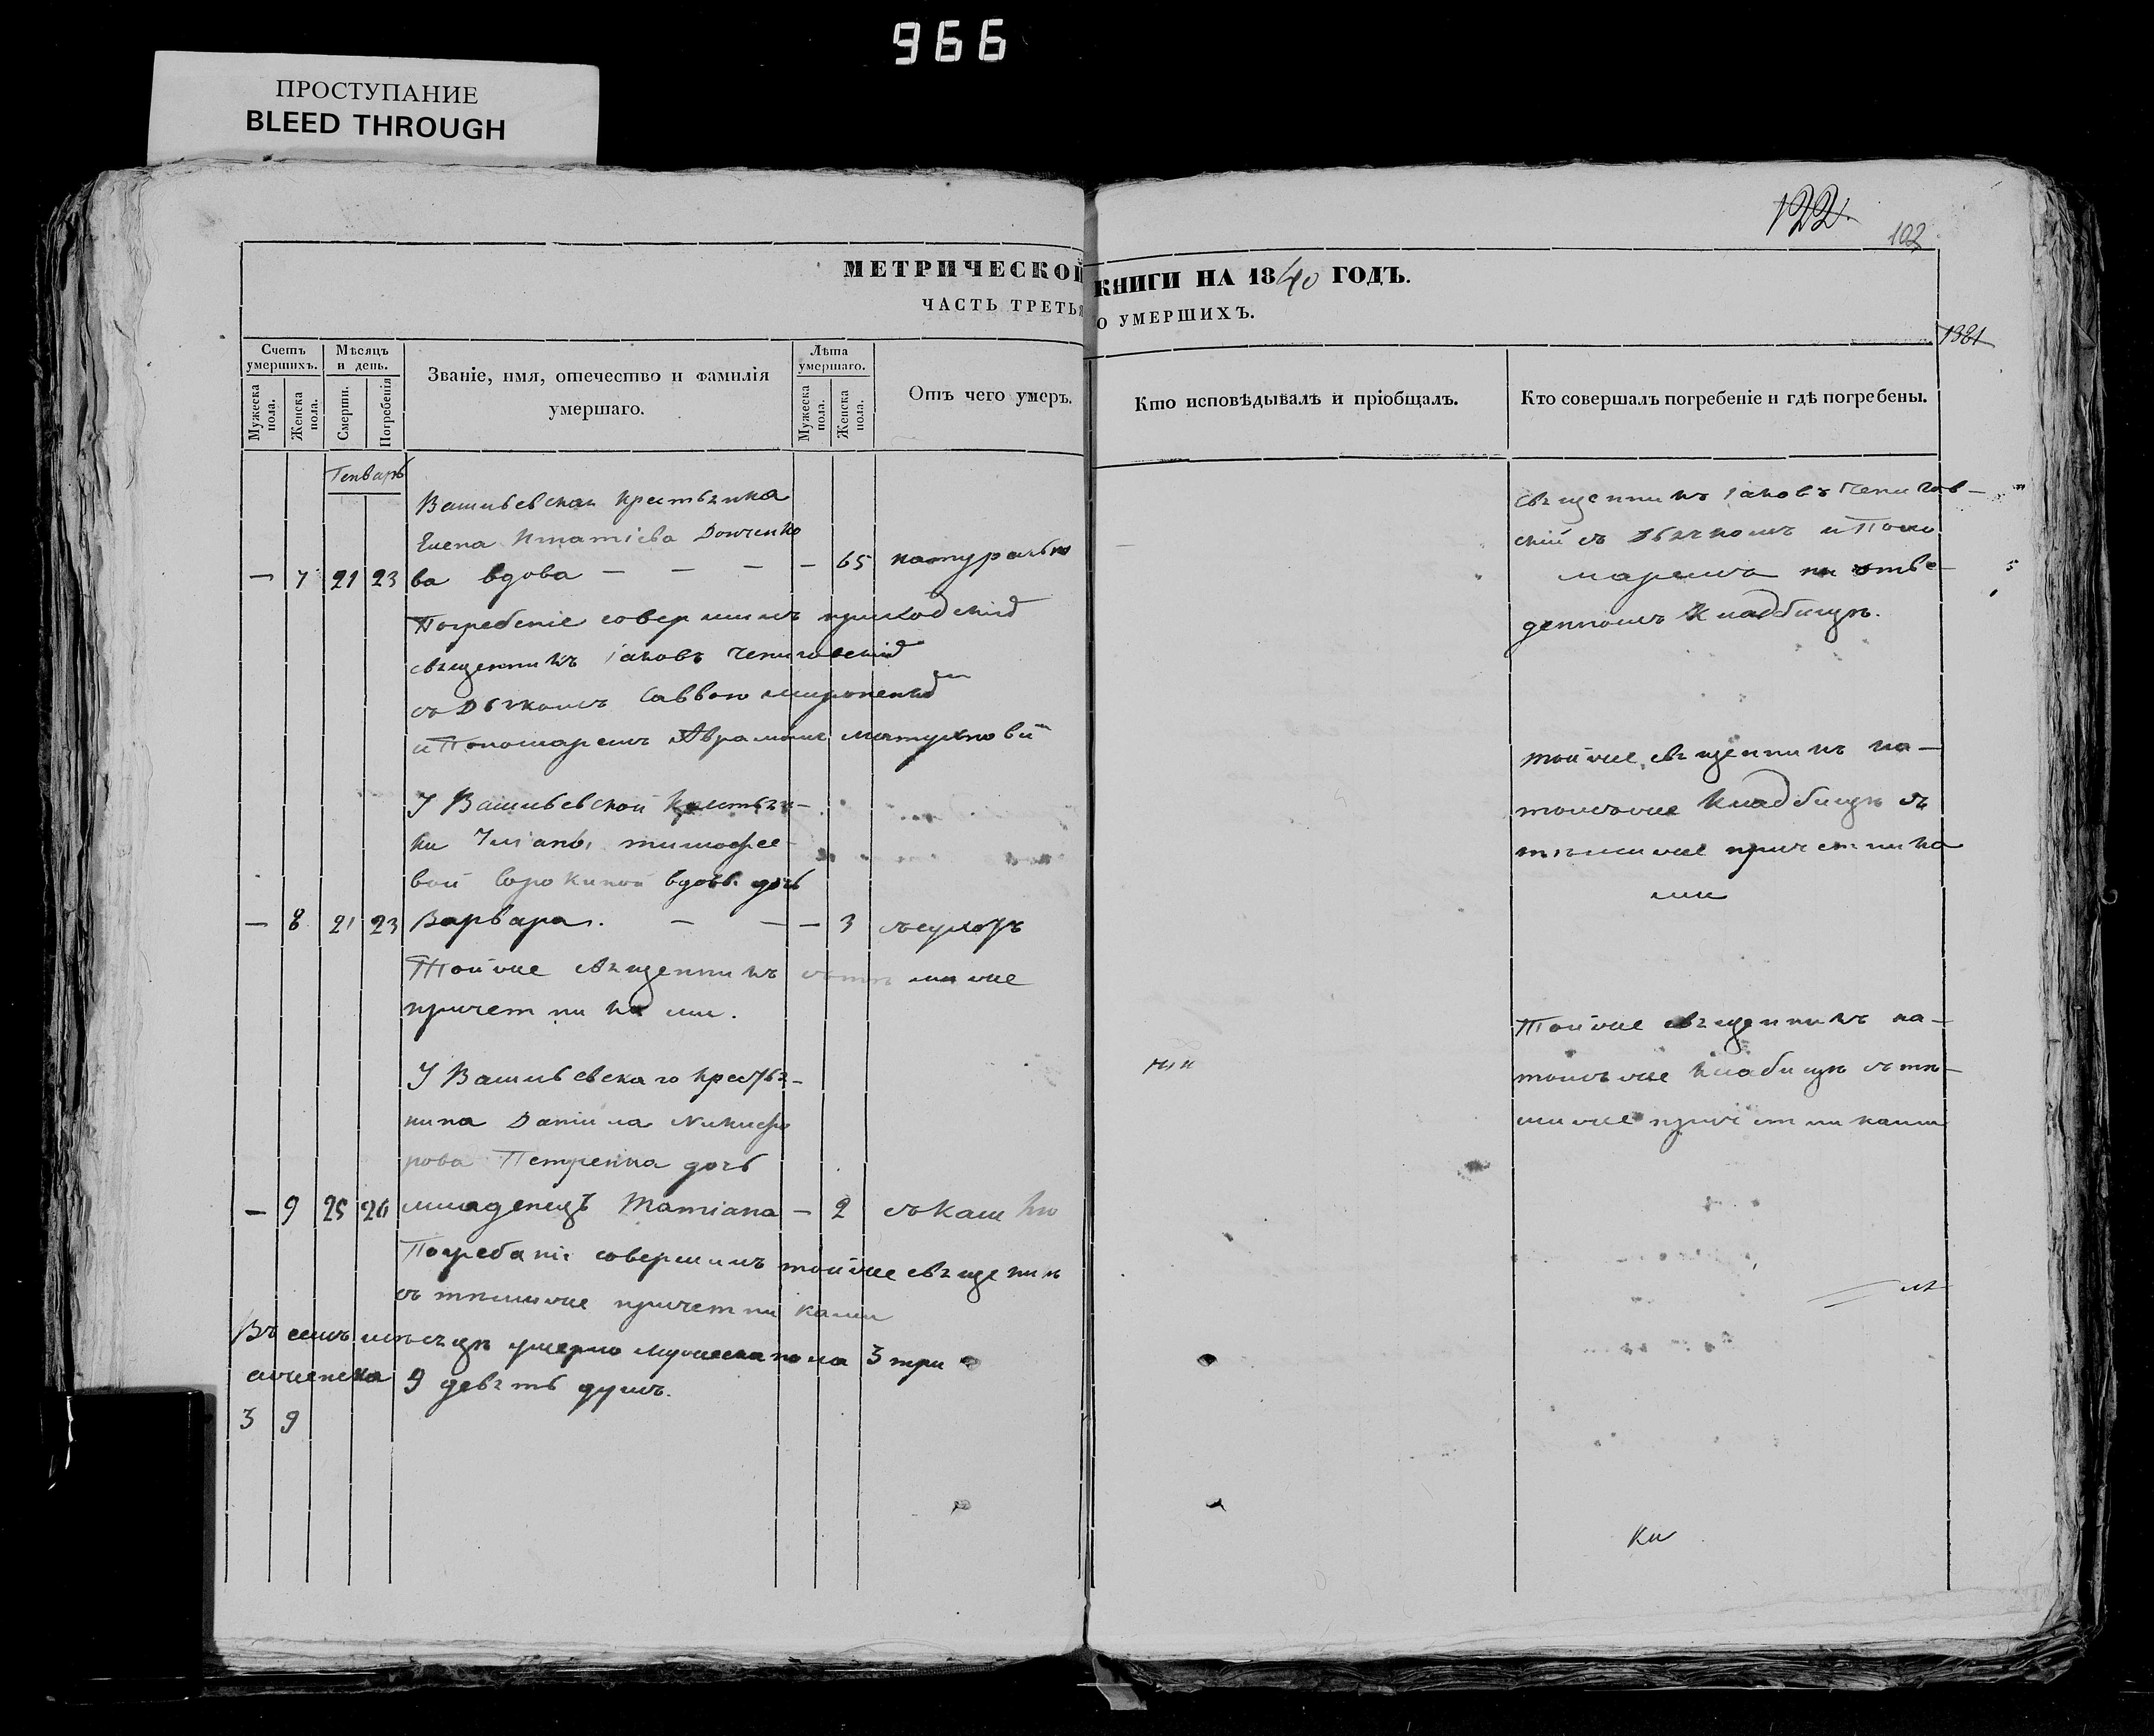 966
ПРОСТУПАНИЕ
BLEED THROUGH
122.
102
МЕТРИЧЕСКОЙ КНИГИ НА 1840 ГОДЪ.
ЧАСТЬ ТРЕТЬЯ О УМЕРШИХЪ.
1381
Счетъ умершихъ.
Мужеска пола.
Женска пола.
Мѣсяцъ и день.
Смерти.
Погребенія
Званіе, имя, отечество и фамилія умершаго.
Лѣта умершаго.
Мужеска пола.
Женска пола.
Отъ чего умеръ.
Кто исповѣдывалъ и пріобщалъ.
Кто совершалъ погребеніе и гдѣ погребены.
Генварь
Васильевская крестьянка
Елена Игнатіева Донченко
— 7 21 23 ва вдова — — — — 65 натурально
Погребеніе совершилъ приходскій
священникъ Іаковъ
съ Дьячкомъ Саввою
и Пономаремъ
священникъ Іаковъ
скій съ Дьячкомъ и Поно
маремъ на отве-
денномъ Кладбищѣ.
У Васильевской крестьян-
ки Уліаны Тимофее-
вой Сорокиной вдовы дочь
— 8 21 23 Варвара. — — — 3
Тойже священникъ съ тѣми же
причетниками.
тойже священникъ на-
томъже Кладбищѣ съ
тѣмиже причетника
ми
У Васильевскаго крестья-
нина Даніила Никифо
рова Петренка дочь
— 9 25 26 младенецъ Татіана — 2 съ кашлю
Погребаніе совершилъ тойже священник
съ тѣмиже причетниками
Тойже священникъ на-
томъже кладбищѣ съ тѣ-
миже причетниками
Въ семъ мѣсяцѣ умерло мужеска пола 3 три
а женска 9 девять душъ.
3 9
ки